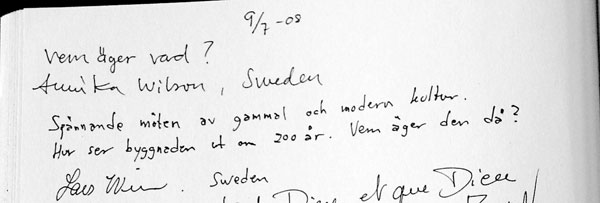 9/7-08
Vem äger vad?
Annika Wilson, Sweden
Spännande möten av gammal och modern kultur.
Hur ser byggnaden ut om 200 år. Vem äger den då?
Lars Sweden
Dieu et que Dieu